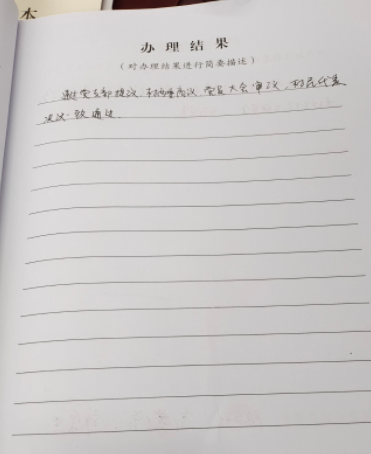 本
办理结果
（对办理结果进行简要描述）
经党支部提议，村两委商议，党员大会审议，村民代表
决议一致通过.